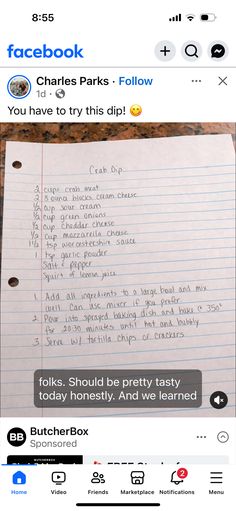 8:55
facebook
Charles Parks · Follow
1d ·
You have to try this dip! 😋
Crab Dip
2 cups crab meat
2 8 ounce blocks cream cheese
1/2 cup sour cream
1/2 cup green onions
1/2 cup cheddar cheese
1/2 cup mozzarella cheese
1 1/2 tsp worcestershire sauce
1 tsp garlic powder
Salt & pepper
Squirt of lemon juice
1 Add all ingredients to a large bowl and mix
well. Can use mixer if you prefer
2 Pour into sprayed baking dish and bake @ 350°
for 20-30 minutes until hot and bubbly
3 Serve w/ tortilla chips or crackers
folks. Should be pretty tasty
today honestly. And we learned
BB
ButcherBox
Sponsored
Home
Video
Friends
Marketplace
2
Notifications
Menu